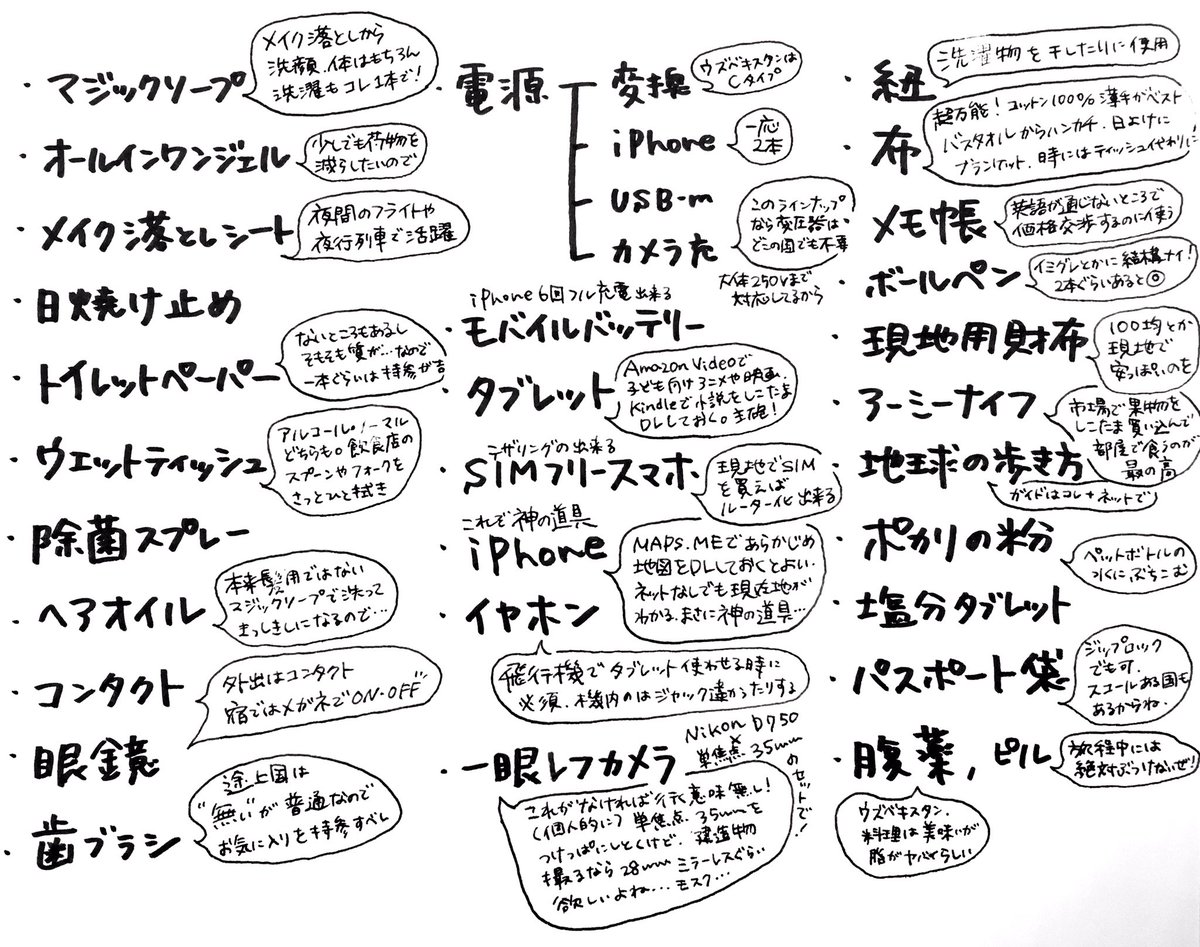 ・マジックソープ
メイク落としから
洗顔、体はもちろん
洗濯もコレ1本で！
・オールインワンジェル
少しでも荷物を
減らしたいので
・メイク落としシート
夜間のフライトや
夜行列車で活躍
・日焼け止め
・トイレットペーパー
ないところもあるし
そもそも質が…なので
一本ぐらいは持参が吉
・ウェットティッシュ
アルコール、ノーマル
どちらも。飲食店の
スプーンやフォークを
さっとひと拭き
・除菌スプレー
・ヘアオイル
本来髪用ではない
マジックソープで洗って
まっしきしになるので…
・コンタクト
外出はコンタクト
宿ではメガネで"ON・OFF"
・眼鏡
・歯ブラシ
途上国は
"無い"が普通なので
お気に入りを持参すべし
・電源
変換
ウズベキスタンは
Cタイプ
iPhone
一応
2本
USB-m
カメラ充
このラインナップ
なら変圧器は、
どこの国でも不要
大体250Vまで
対応してるから
iPhone6回フル充電出来る
・モバイルバッテリー
・タブレット
Amazon Videoで
子ども向けアニメや映画、
Kindleで小説をしこたま
DLしておく。主砲！
テザリングの出来る
・SIMフリースマホ
現地でSIM
を買えば
ルーター化出来る
これぞ神の道具
・iPhone
MAPS.MEであらかじめ
地図をDLしておくとよい。
ネットなしでも現在地が
わかる。まさに神の道具…
・イヤホン
飛行機でタブレット使わせる時に
必須。機内のはジャック違かったりする
・一眼レフカメラ
Nikon D750
×
単焦点 35mm
のセットで！
これがなければ行く意味無し！
(個人的に) 単焦点 35mmを
つけっぱにしとくけど、建造物
撮るなら28mmミラーレスぐらい
欲しいよね…モスク…
・紐
洗濯物を干したりに使用
・布
超万能！コットン100%薄手がベスト
バスタオルからハンカチ、日よけに
ブランケット、時にはティッシュ代わりに
・メモ帳
英語が通じないところで
価格交渉するのに使う
・ボールペン
イミグレとかに結構ナイ！
2本ぐらいあると◎
・現地用財布
100均とか
現地で
安っぽいのを
・アーミーナイフ
市場で果物を
しこたま買い込んで
部屋で食うのが
最の高
・地球の歩き方
ガイドはコレ+ネットで
・ポカリの粉
ペットボトルの
水にぶちこむ
・塩分タブレット
・パスポート袋
ジップロック
でも可。
スコールある国も
あるからね。
・腹薬, ピル
旅程中には
絶対ぶつけないぜ！
ウズベキスタン、
料理は美味いが
脂がヤバイらしい